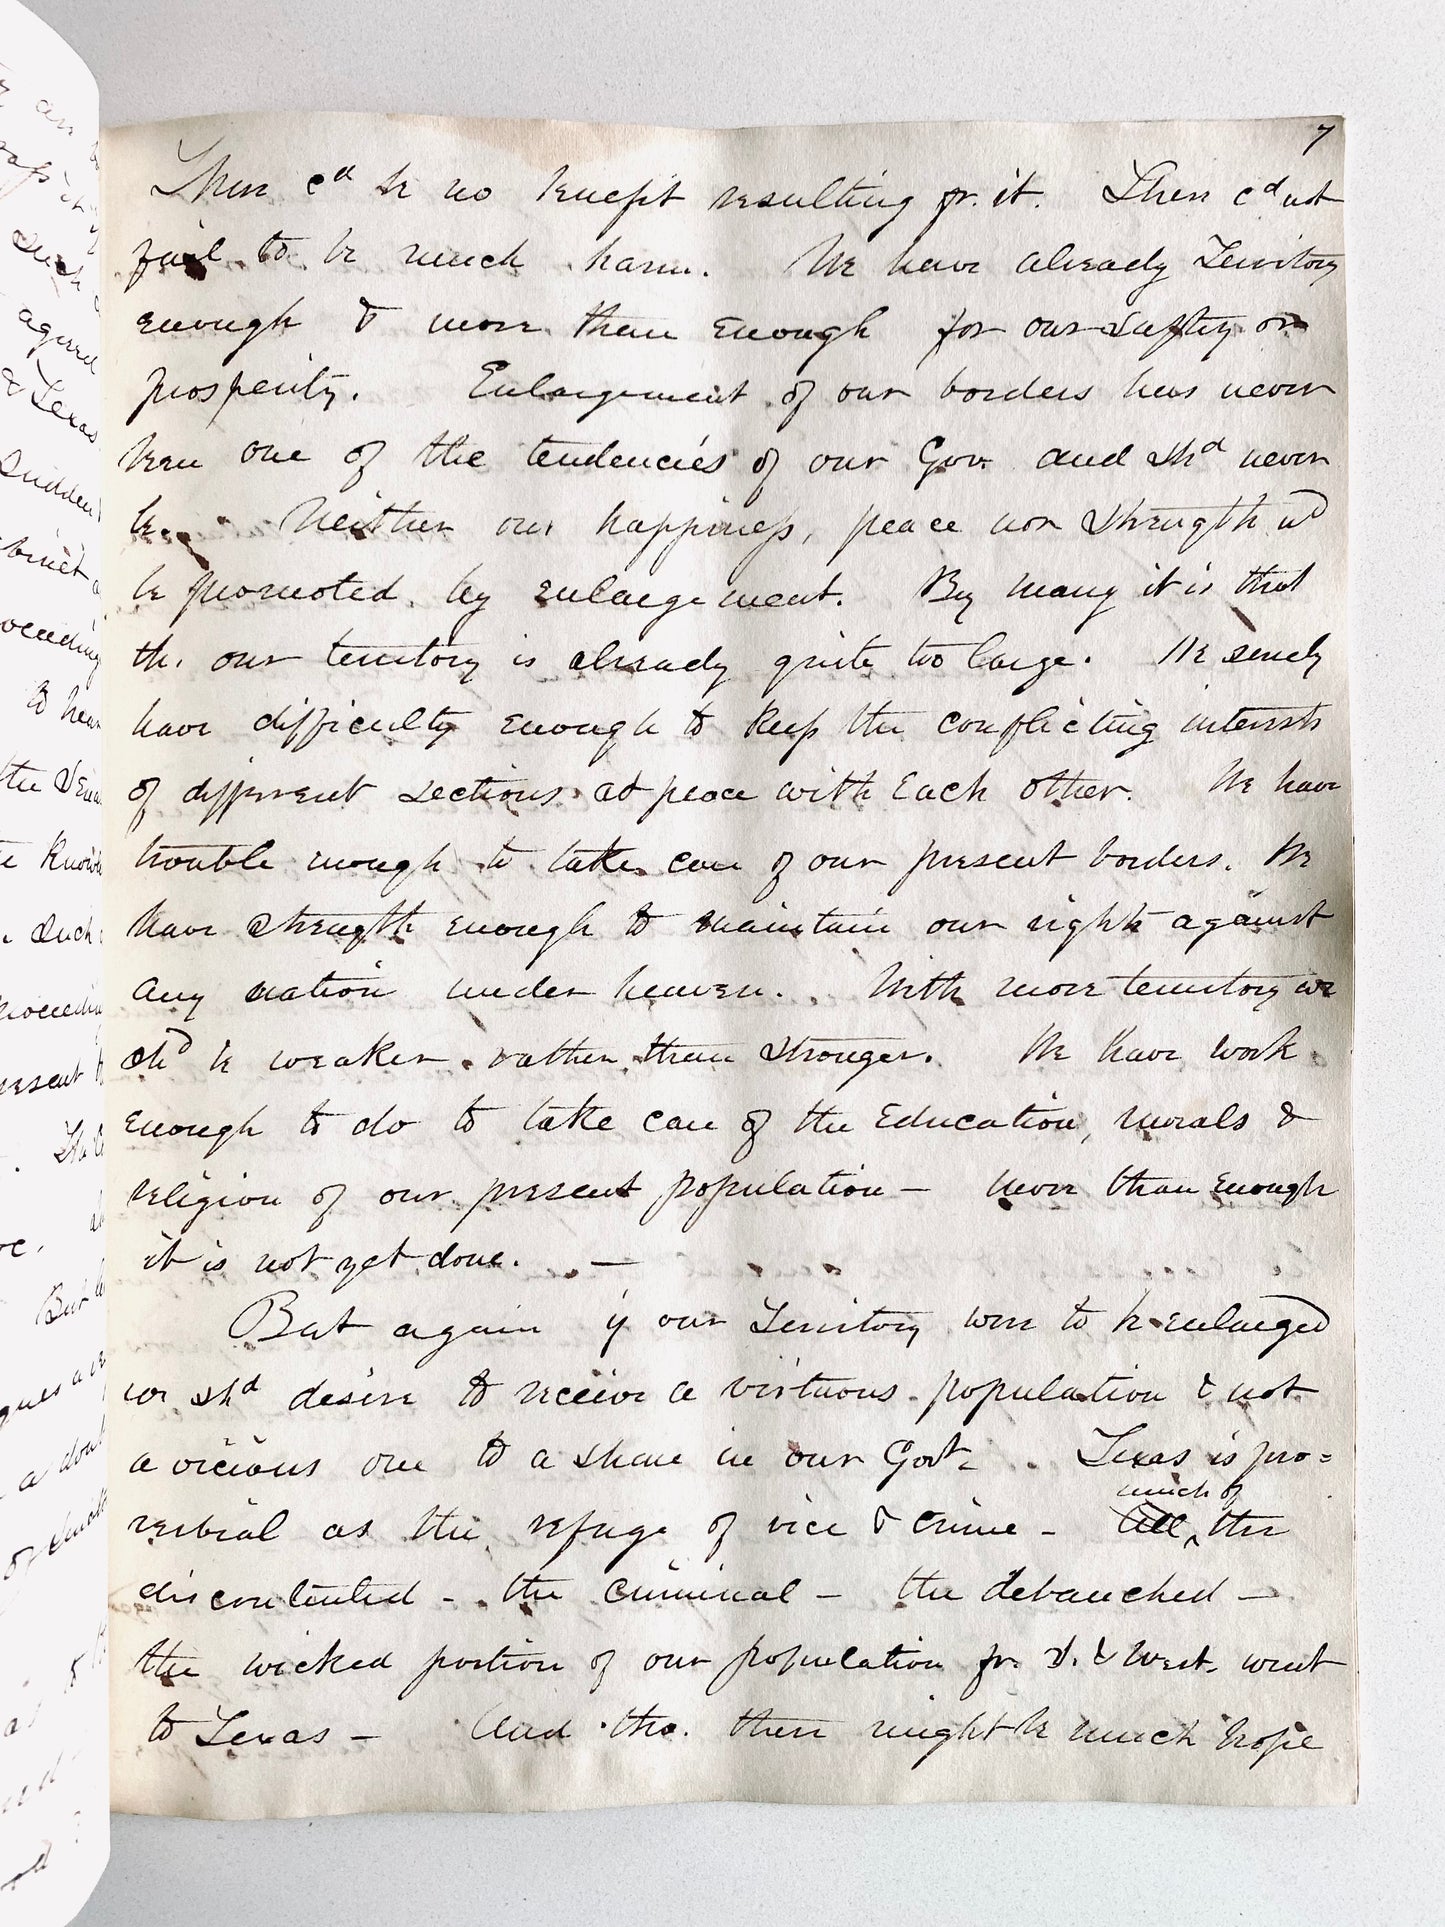 7
There cd be no benefit resulting fr. it. There cd not
fail to be much harm. We have already Territory
enough & more than enough for our safty or
prosperity. Enlargement of our borders has never
been one of the tendencies of our Gov. and shd never
be. Neither our happiness, peace nor strength wd
be promoted by enlargement. By many it is thot
th. our territory is already quite too large. We
have difficulty enough to keep the conflicting interests
of different sections at peace with Each other. We have
trouble enough to take care of our present borders. We
have strength enough to maintain our rights against
any nation under heaven. With more territory we
shd be weaker rather than stronger. We have work
enough to do to take care of the Education, morals &
religion of our present population — more than enough
it is not yet done. —
But again if our Territory were to be enlarged
we shd desire to receive a virtuous population & not
a vicious one to a share in our Govt. Texas is pro=
verbial as the refuge of vice & crime - All
much of
the
discontented - the criminal - the debauched -
the wicked portion of our population fr. S. & West. went
to Texas - And tho. there might be much hope
such
agreed
& Texas
to hear
the
such
present
But